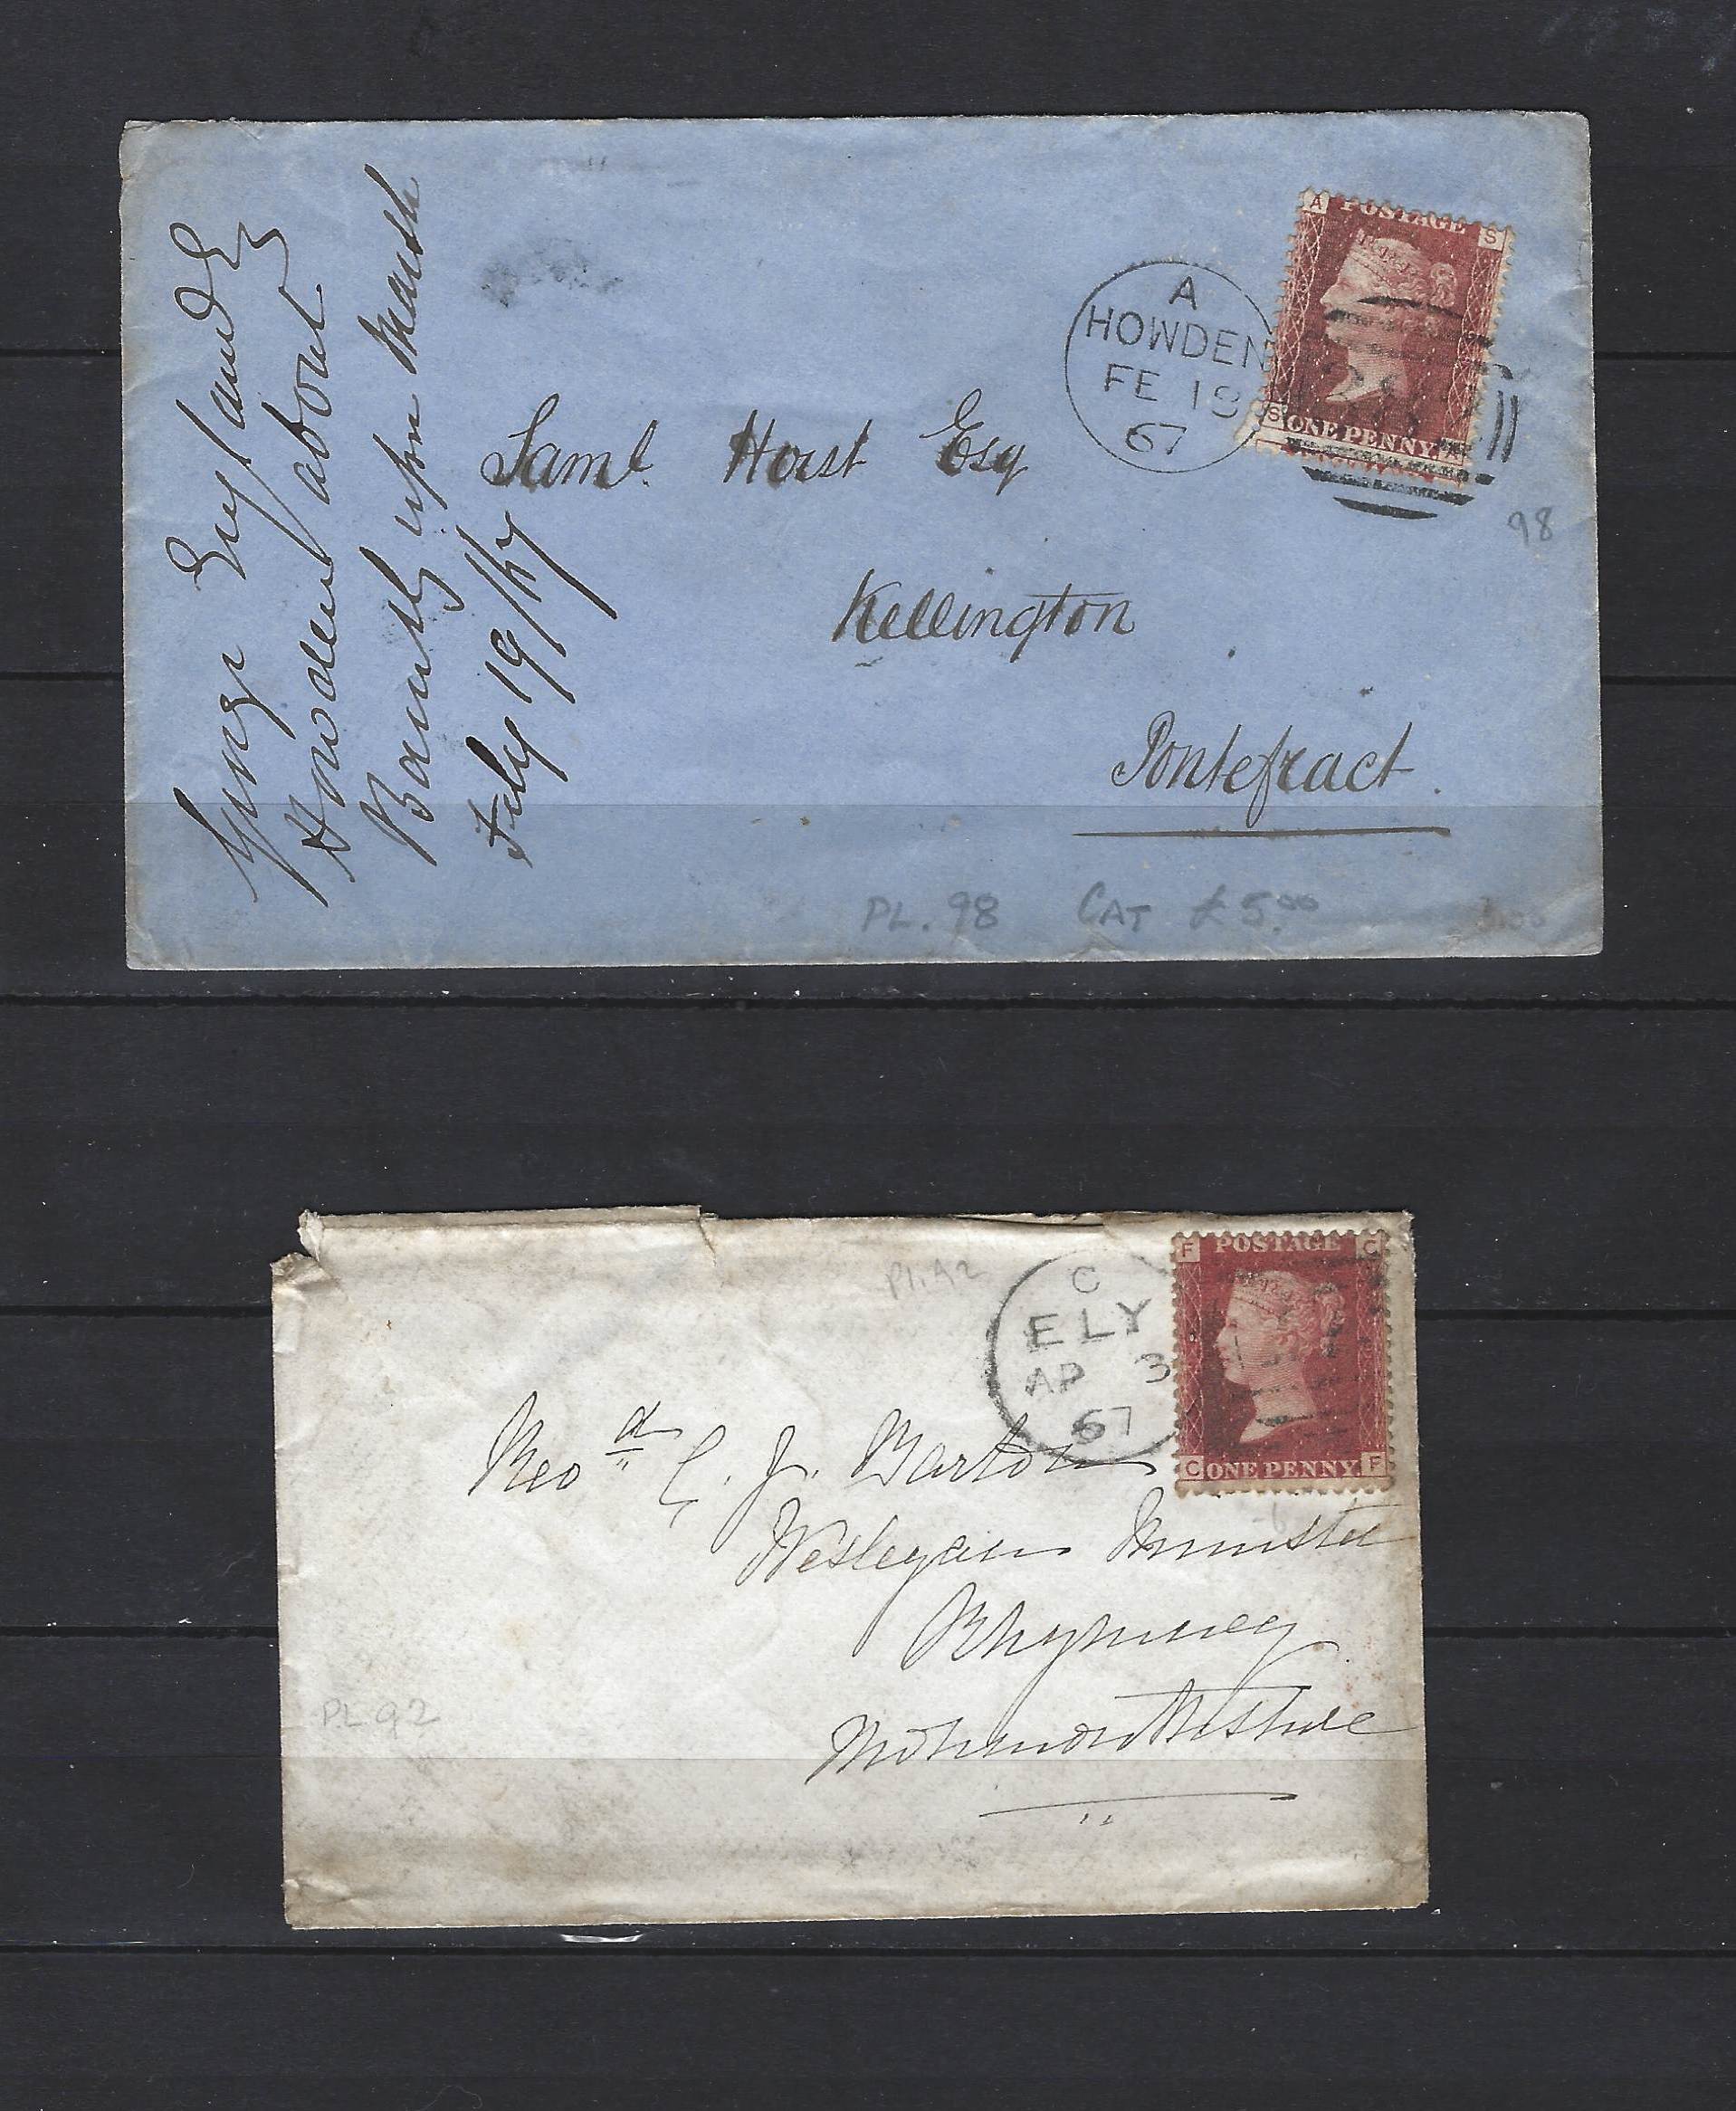 George England Esq
Howden about
Barmby upon Marsh
Feby 19/67
A
HOWDEN
FE 19
67
A POSTAGE S
S ONE PENNY A
98
Saml. Horst Esq
Kellington
Pontefract.
PL. 98 CAT £5.00
Pl. 92
C
ELY
AP 3
67
F POSTAGE C
C ONE PENNY F
Revd C. J. Barton
Wesleyan Minister
Rhymney
Monmouthshire
PL 92